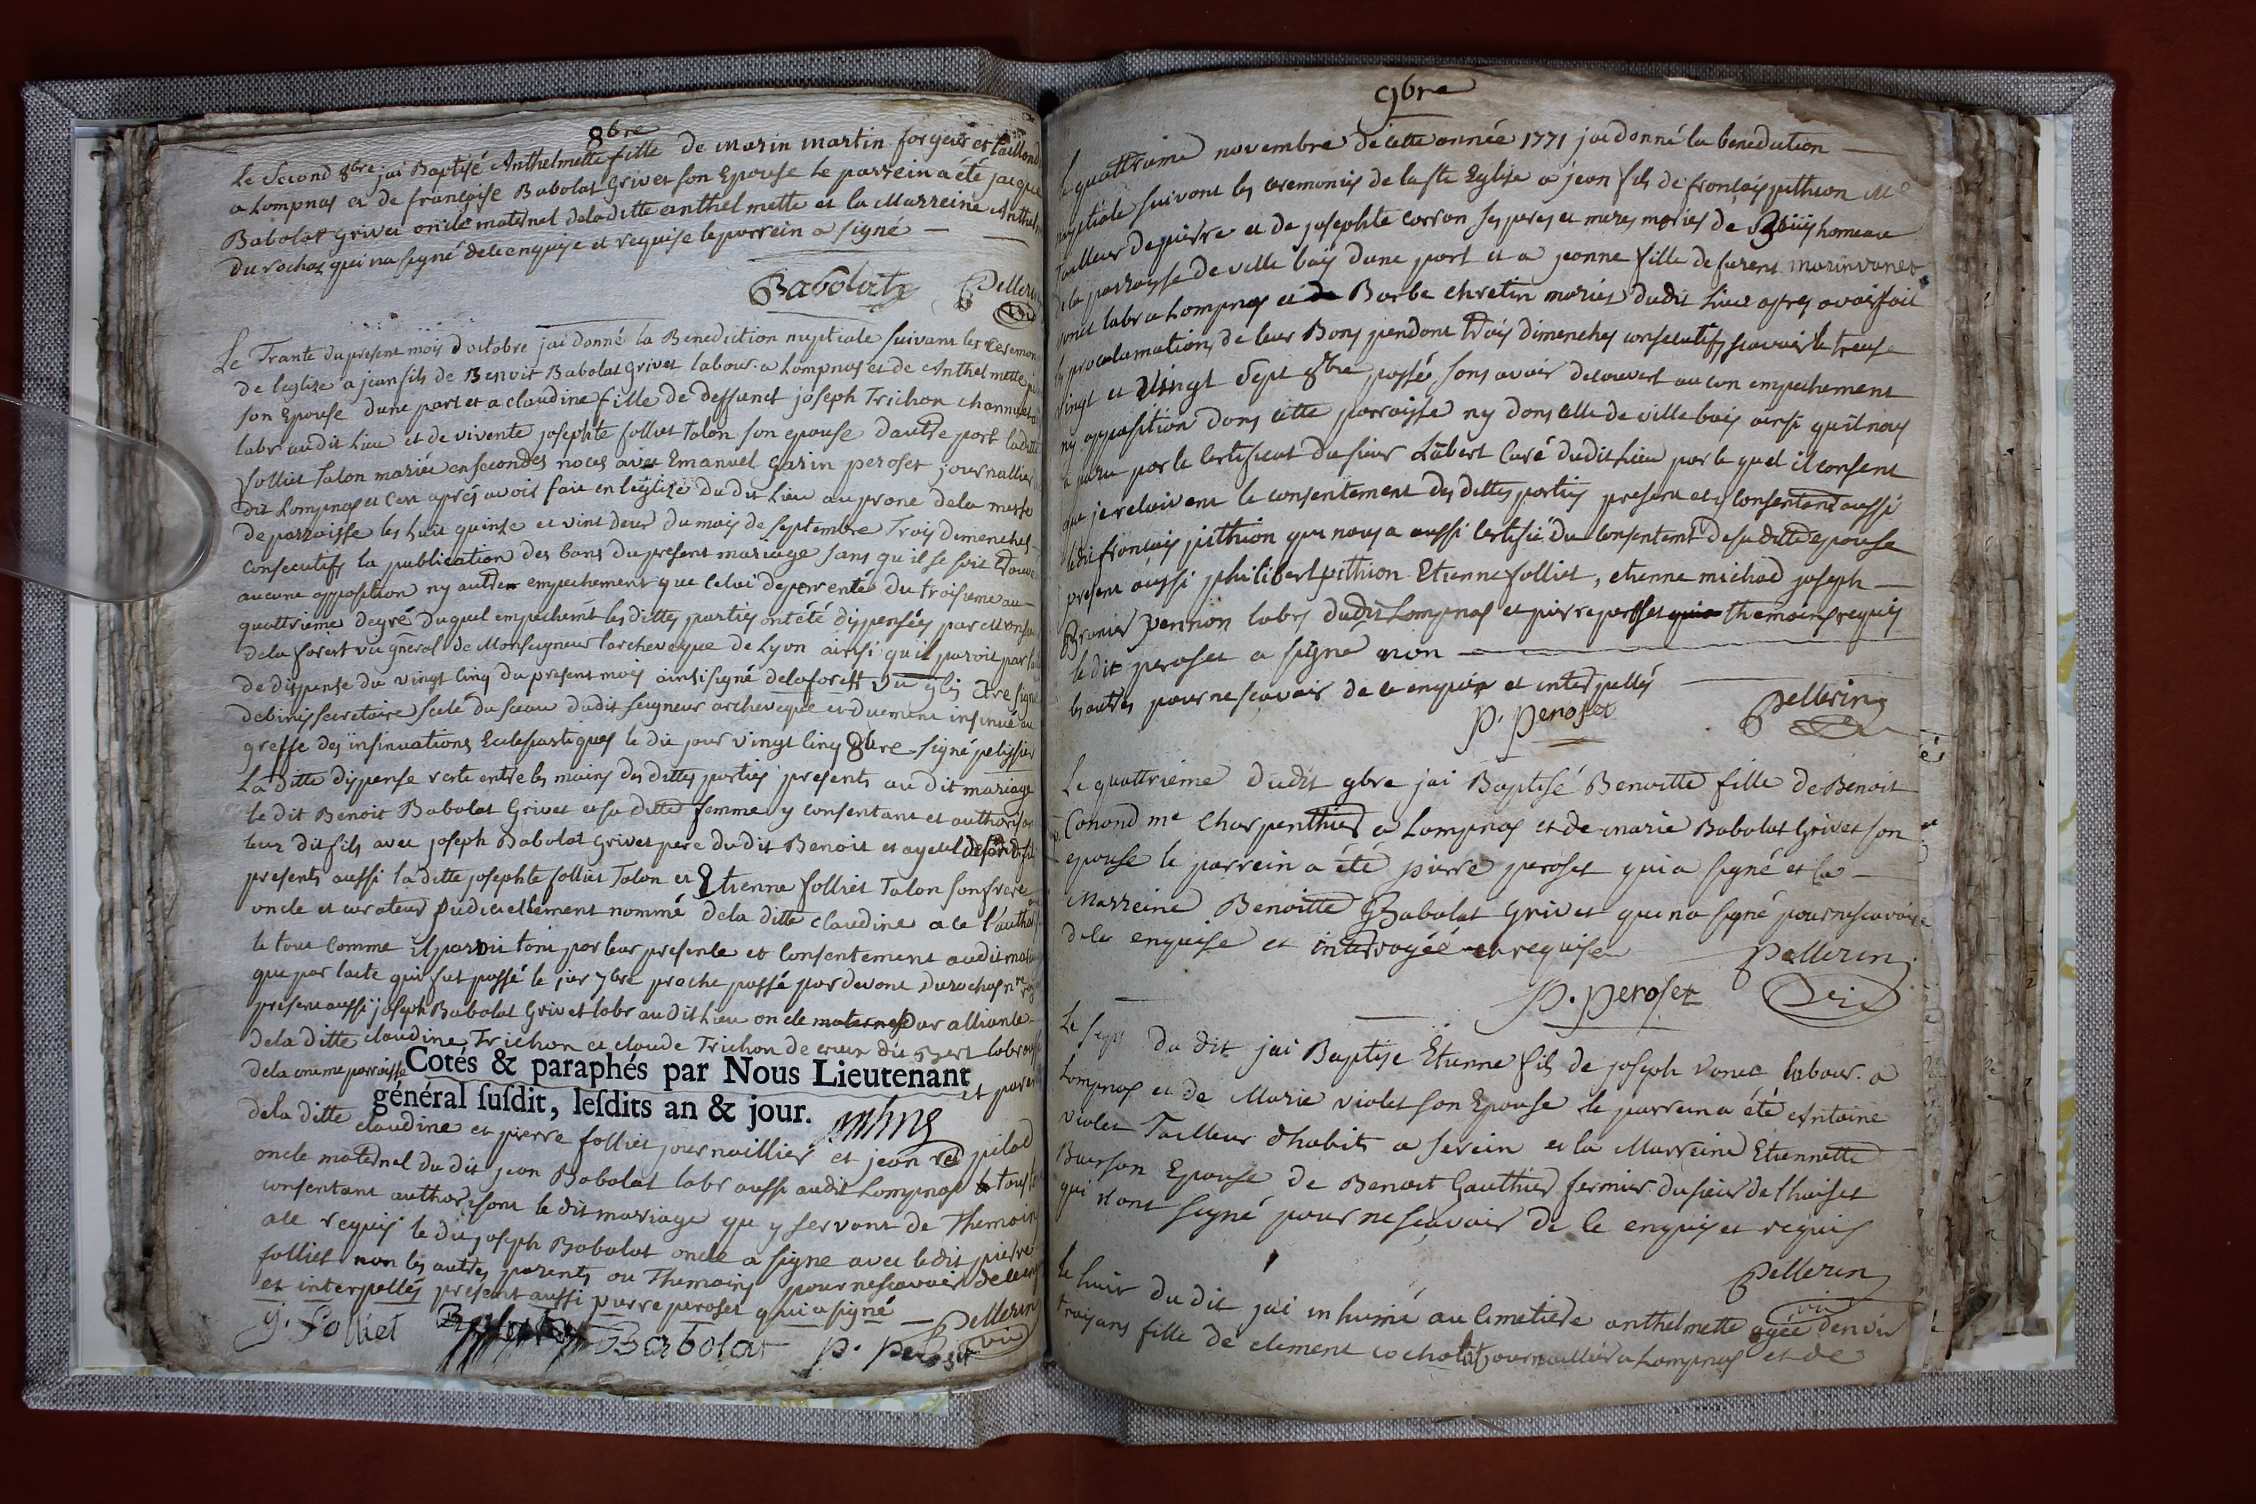 8bre
Le Second 8bre jai Baptisé Anthelmette fille de marin martin forgeur et taillond
a Lompnas et de françoise Babolat Grivet son Epouse Le parrein a été jacque
Babolat Grivet oncle maternel de laditte anthelmette et la Marreine Anthel
du rochaz qui na signé de le enquise et requise le parrein a signé
Babolat Pellerin
vic
Le Trante du present mois doctobre jai donné la Benediction nuptiale suivant les ceremon
de leglize a jean fils de Benoit Babolat Grivet labour. a Lompnas et de Anthelmette
son Epouse dune part et a claudine fille de deffunct joseph Trichon
labr audit Lieu et de vivente josephte folliet Talon son epouse dautre part laditte
folliet Talon mariée en secondes noces avec Emanuel Garin peroset journallier
dit Lompnas et Ce apres avoir fait en leglize du dit Lieu au prone de la messe
de parroisse les huit quinze et vint deux du mois de septembre Trois dimenches
consecutifs la publication des bans du present mariage sans qu il se soit trouvé
aucune opposition ny autre empechement que celui de parenté du troisieme au
quattrieme degré duquel empechemt les dittes parties ont été dispensées par Monsr
de la forest vic gneral de Monseigneur larcheveque de Lyon ainsi quil paroit par
de dispense du vingt cinq du present mois ainsi signé delaforest
secretaire scelé du sceau dudit seigneur archeveque et duement insinué au
greffe des insinuations Eclesiastiques le dit jour vingt cinq 8bre signé pelissier
La ditte dispense reste entre les mains des dittes parties presents au dit mariage
le dit Benoit Babolat Grivet et sa ditte femme y consentant et authorisant
leur dit fils avec joseph Babolat Grivet pere du dit Benoit et ayeul
presents aussi la ditte josephte folliet Talon et Etienne folliet Talon son frere
oncle et curateur judiciellement nommé de la ditte claudine a ce l'author
le tout comme il paroit tant par leur presence et consentement audit
que par lacte qui fut passé le 7bre proche passé par devant Durochas nre
present aussi joseph Babolat Grivet labr au dit Lieu oncle maternel par alliance
dela ditte claudine Trichon et claude Trichon labr
dela meme parroisse et paren
Cotés & paraphés par Nous Lieutenant
général susdit, lesdits an & jour.
dela ditte claudine et pierre folliet journaillier et jean pilod
oncle maternel du dit jean Babolat labr aussi audit Lompnas tous
consentant authorisant le dit mariage que y servant de Themoin
a ce requis le dit joseph Babolat oncle a signe avec ledit pierre
folliet non les autres parents ou Themoins pour ne scavoir de ce
et interpellés present aussi pierre peroset qui a signé
folliet Babolat P. Peroset Pellerin
vic
9bre
Le quattrieme novembre de cette année 1771 jai donné la benediction
nuptiale suivant les ceremonies de la ste Eglise a jean fils de françois pithion Me
Tailleur de pierre et de josephte corron ses peres et meres mariés de homeau
de la parroisse de ville bois dune part et a jeanne fille de Marin vonet
vonet labr a Lompnas et de Barbe chretin mariés dudit Lieu apres avoir fait
les proclamations de leur Bans pendant trois dimenches consecutifs scavoir le treise
vingt et vingt sept 8bre passé sans avoir decouvert aucun empechement
ny opposition dans cette parroisse ny dans celle de ville bois ainsi quil nous
a paru par le certificat du sieur Labert Curé dudit Lieu par le quel il consent
que je recoivent le consentement des dittes parties present et y consentant aussi
ledit francois pithion qui nous a aussi certifié du consentemt de sa ditte epouse
present aussi philibert pithion Etienne folliet, etienne michod joseph
pernion labrs dudit Lompnas et pierre peroset themoins requis
le dit peroset a signe non
les autres pour ne scavoir de ce enquis et interpellés
P. Peroset Pellerin
vic
Le quattrieme dudit 9bre jai Baptisé Benoitte fille de Benoit
Conand me Charpenthier a Lompnas et de marie Babolat Grivet son
epouse le parrein a été pierre peroset qui a signé et la
Marreine Benoitte Babolat Grivet qui na signé pour ne scavoir
de le enquise et interrogée et requise
P. Peroset Pellerin
vic
Le sept du dit jai Baptise Etienne fils de joseph vonet labour. a
Lompnas et de Marie violet son Epouse le parrein a été Antoine
violet Tailleur dhabits a serein et la Marreine Etiennette
Buerson Epouse de Benoit Gauthier fermier du sieur de lhuiset
qui nont signé pour ne sçavoir de le enquis et requis
Pellerin
vic
Le huit du dit jai inhumé au cimetiere anthelmette agée denvir
trois ans fille de clement cochat journaillier a Lompnas et de